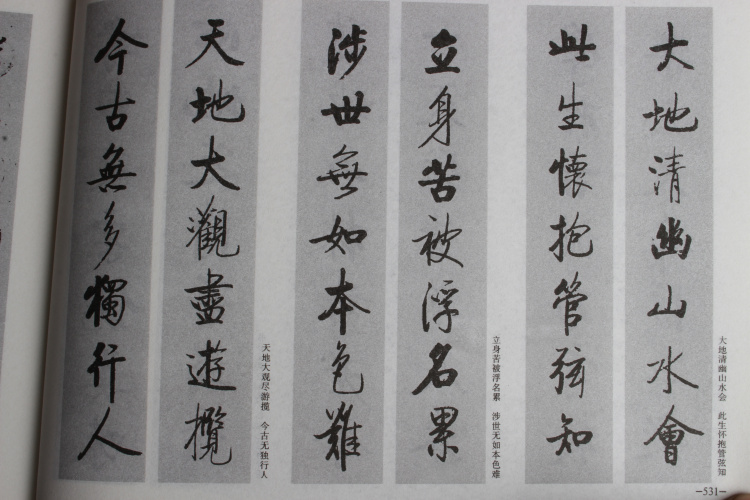 大地清幽山水会 此生怀抱管弦知
大地清幽山水會
此生懷抱管弦知
立身苦被浮名累 涉世无如本色难
立身苦被浮名累
涉世無如本色難
天地大观尽游揽 今古无独行人
天地大觀盡遊攬
今古無多獨行人
-531-